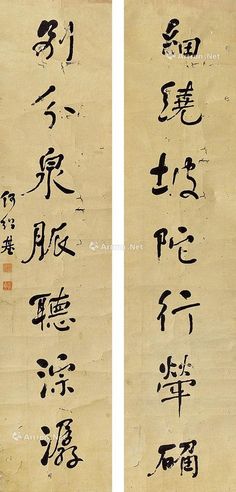 細繞坡陀行犖确
別分泉脈聽淙潺
何紹基